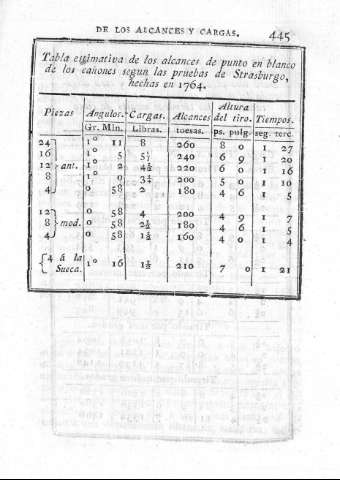 DE LOS ALCANCES Y CARGAS. 445
Tabla estimativa de los alcances de punto en blanco
de los cañones segun las pruebas de Strasburgo,
hechas en 1764.
Piezas Angulos. Cargas. Alcances Altura del tiro. Tiempos.
Gr. Min. Libras. toesas. ps. pulg. seg. terc.
24 1° 11 8 260 8 0 1 27
16 1° 5 5½ 240 6 9 1 20
12 ant. 1° 2 4½ 220 6 0 1 16
8 1° 0 3¼ 200 5 0 1 10
4 0 58 2 180 4 6 1 5
12 0 58 4 200 4 9 1 7
8 mod. 0 58 2½ 180 4 6 1 5
4 0 58 1½ 160 4 0 1 4
4 á la
Sueca. 1° 16 1½ 210 7 0 1 21